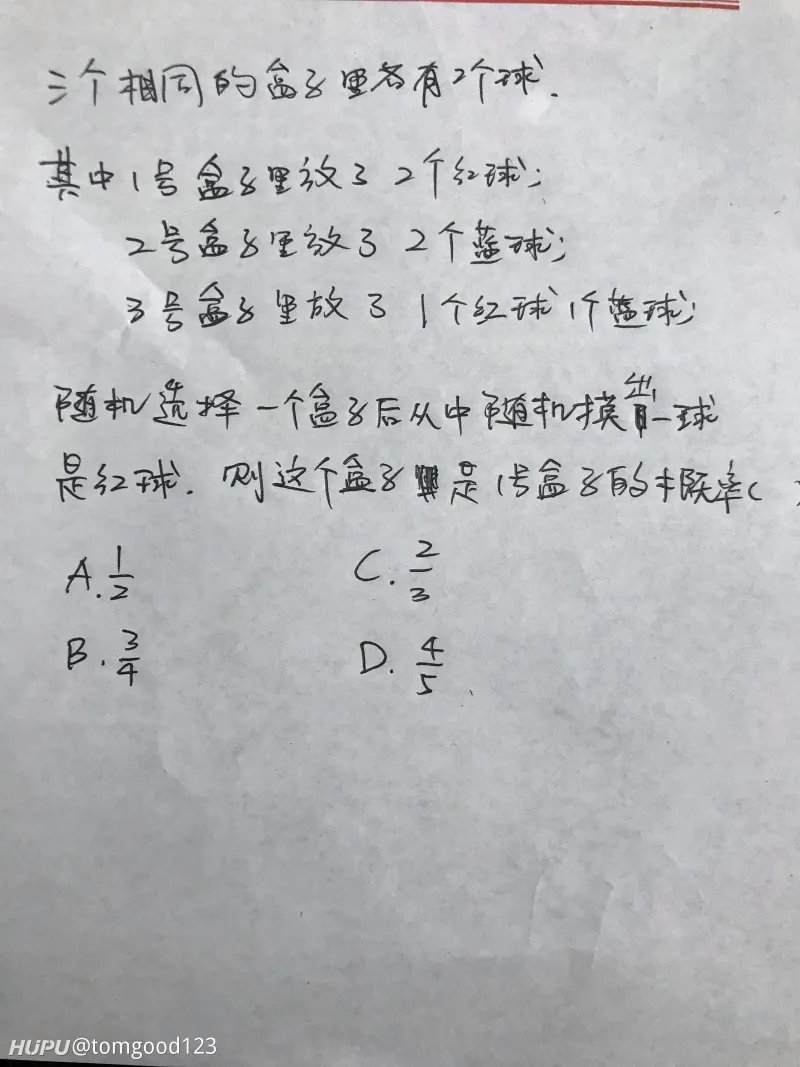 三个相同的盒子里各有2个球.
其中1号盒子里放了2个红球;
2号盒子里放了2个蓝球;
3号盒子里放了1个红球1个蓝球;
随机选择一个盒子后从中随机摸出一球
是红球. 则这个盒子是1号盒子的概率( )
A. 1/2 C. 2/3
B. 3/4 D. 4/5
HUPU@tomgood123